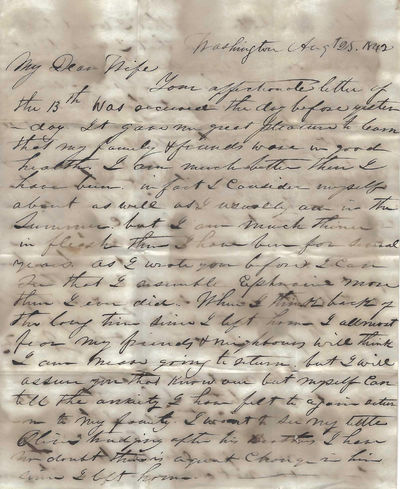 Washington Augt 25. 1842
My Dear Wife
Your affectionate letter of
the 13th Was received the day before yester
-day It gave me great Pleasure to learn
that my family & friends were in good
health I am much better than I
have been. in fact I consider myself
about as well as I usually am in the
Summer. but I am much thiner
in flesh than I have been for several
years. as I wrote you before I can
see that I resemble Ephraim more
than I ever did. When I think back of
the long time since I left home I allmost
fear my friends & neighbours will think
I am never going to return but I will
assure you that know one but myself can
tell the anxiety I have felt to again return
to my family. I want to see my little
trudging after his I have
no doubt there is a great Change in him
since I left home.